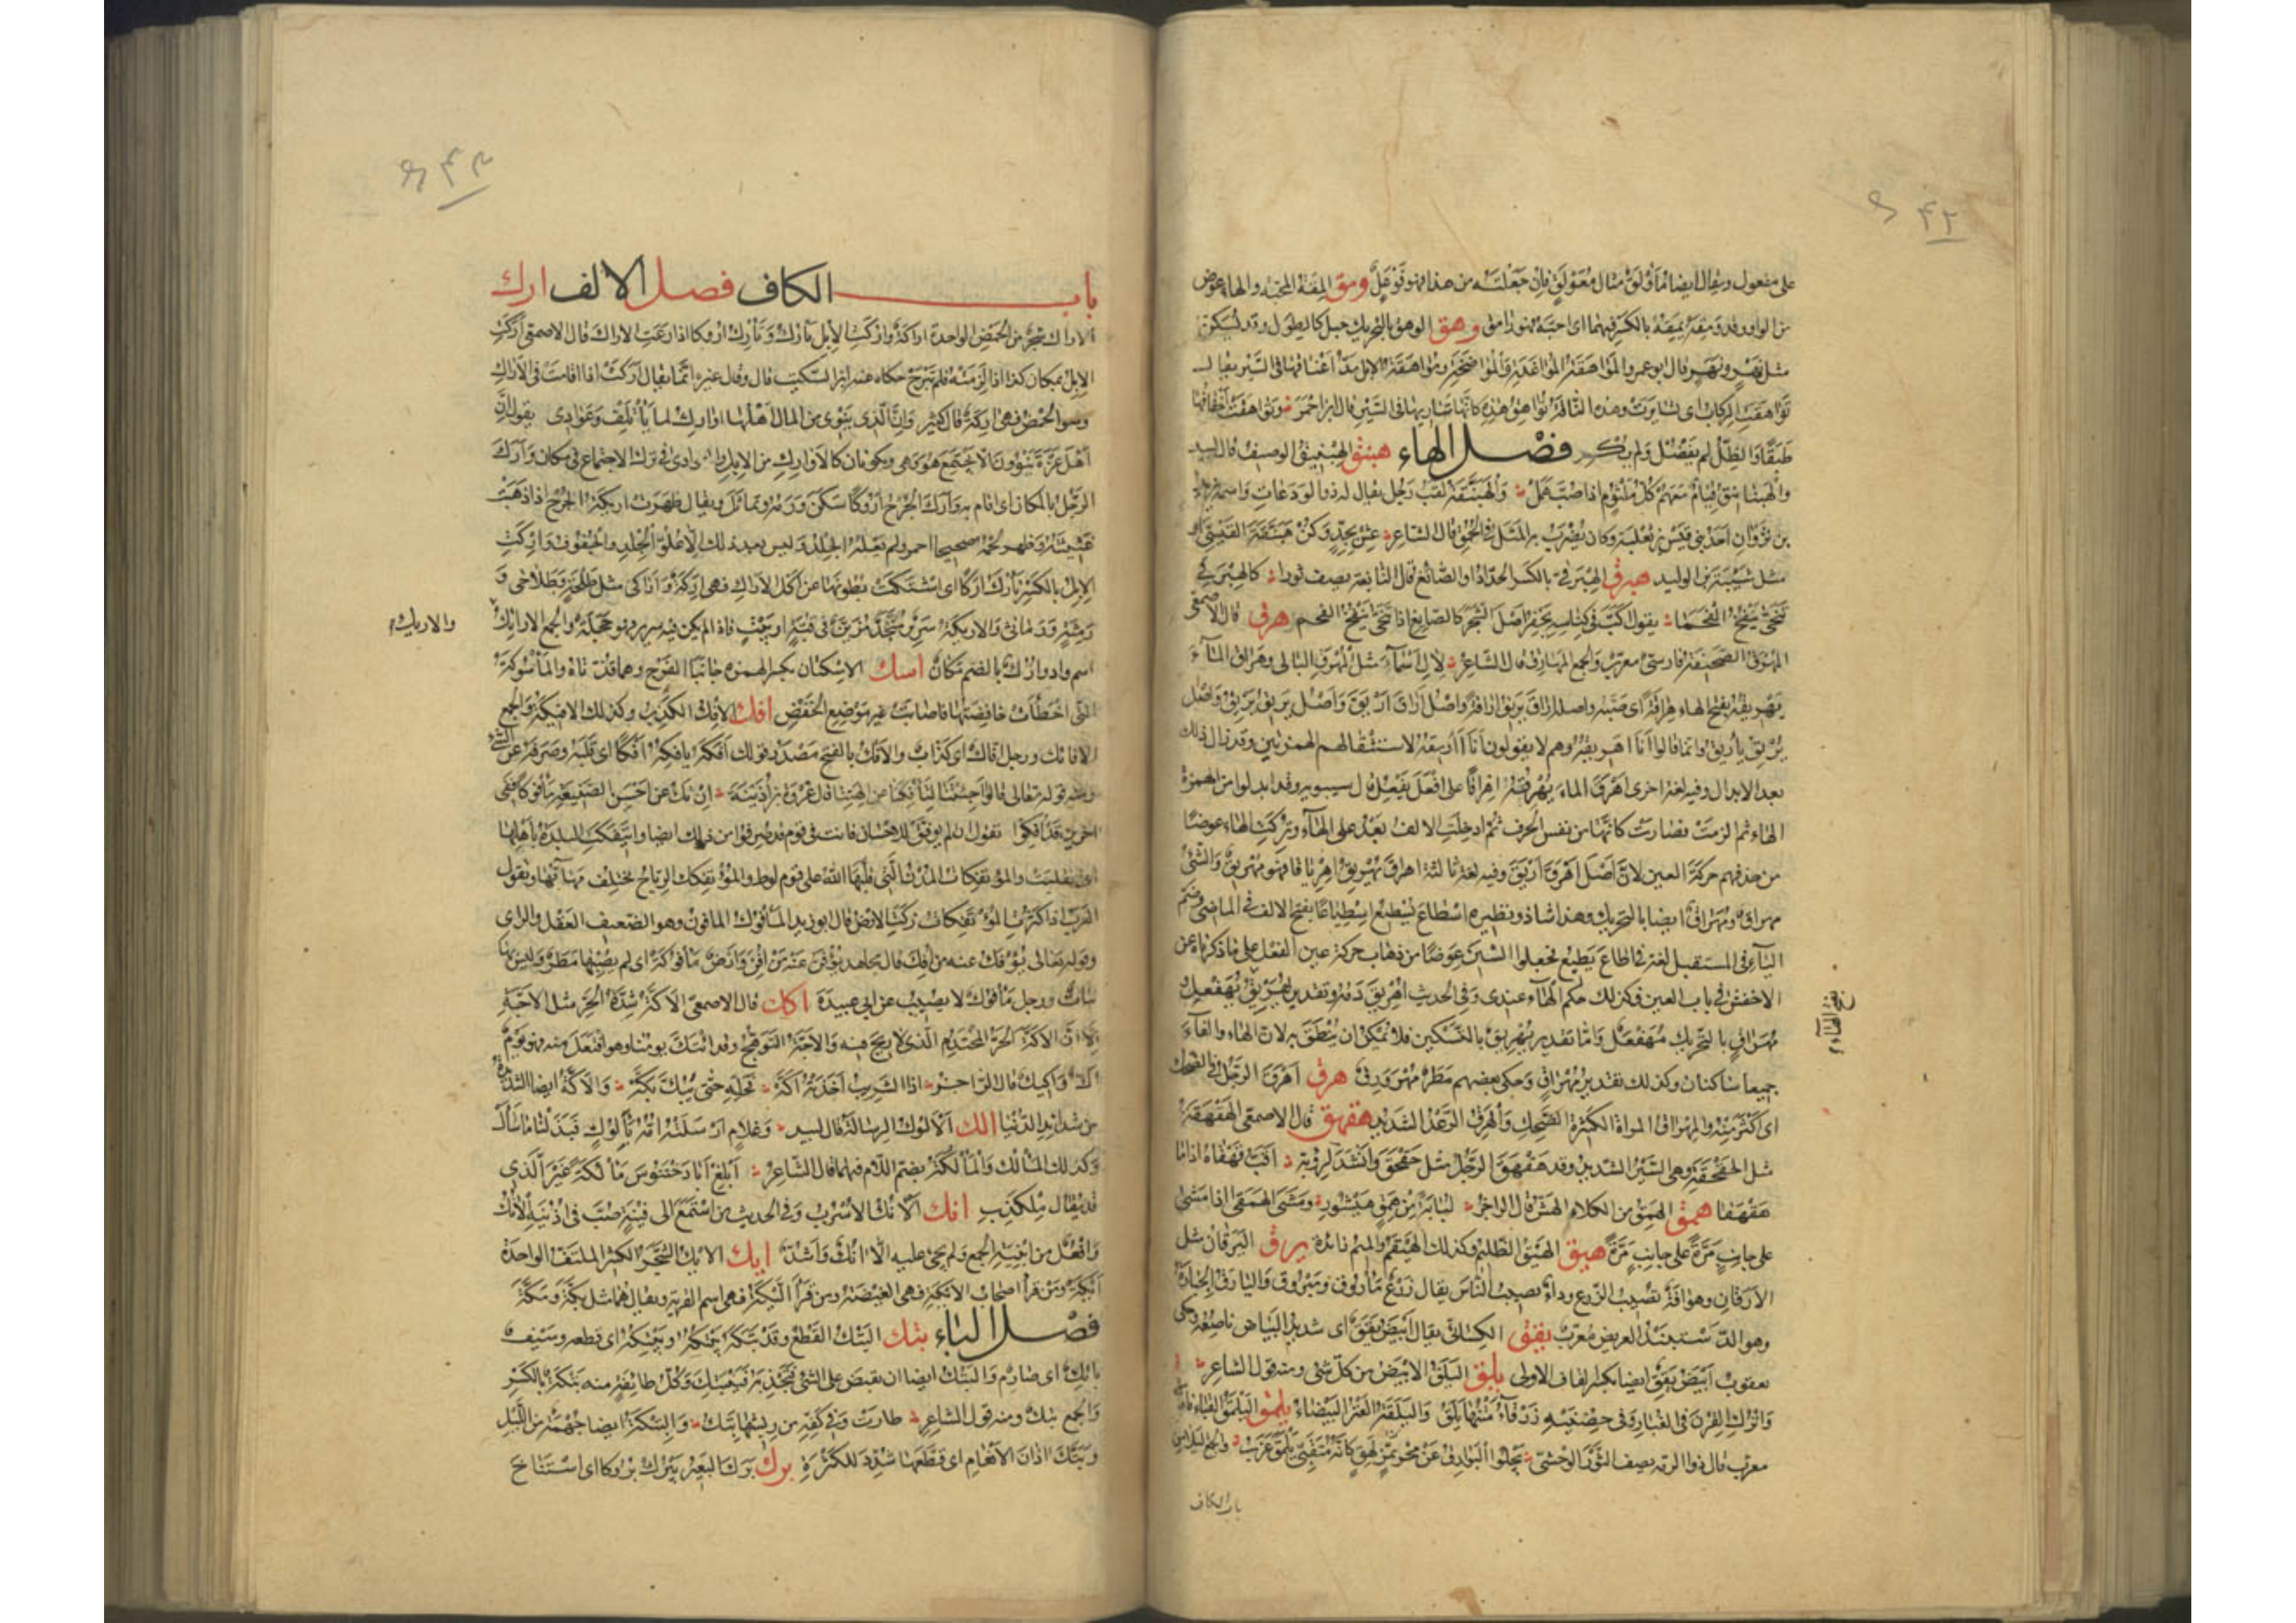 على مفعول ويقال ايضا مأولق مثال معولق فان جعلته من هذا فهو فوعل ومق المقة المحبة والهاء عوض
من الواو وقد ومقه يمقه بالكسر فيهما اى احبه فهو وامق وهق الوهق بالتحريك حبل كالطول وقد يسكن
مثل نهر ونهر قال ابو عمرو المواهقة المواغدة والمواضخة ومواهقة الابل مد اعناقها فى السير يقال
تواهقت الركاب اى تسايرت وهذه الناقة تواهق هذه كانها تباريها فى السير قال ابن احمر وتواهقت اخفافها
طبقا والظل لم يفضل ولم يكر فصل الهاء هبنق الهبنيق الوصيف قال لبيد
والهبانيق قيام معهم كل ملثوم اذا صب همل والهبنقة لقب رجل يقال له ذوالودعات واسمه يزيد
بن ثروان احد بنى قيس بن ثعلبة وكان يضرب به المثل فى الحمق قال الشاعر عش بجد وكن هبنقة القيسى او
مثل شيبة بن الوليد هبرق الهبرقى بالكسر الحداد او الصائغ قال النابغة يصف ثورا كالهبرقى
تنحى ينفخ الفحما يقول اكب فى كناسه يحفر اصل الشجر كالصايغ اذا تنحى ينفخ الفحم هرق قال الاصمعى
المهرق الصحيفة فارسى معرب والجمع المهارق قال الشاعر لال اسماء مثل المهرق البالى وهراق الماء
يهريقه بفتح الهاء هراقة اى صبه واصله اراق يريق اراقة واصل اراق اريق واصل يريق يريق واصل
يريق يأريق وانما قالوا انا اهريقه وهم لا يقولون انا أأريقه لاستثقالهم الهمزتين وقد زال ذلك
بعد الابدال وفيه لغة اخرى اهرق الماء يهرقه اهراقا على افعل يفعل قال سيبويه وقد ابدلوا من الهمزة
الهاء ثم لزمت فصارت كانها من نفس الحرف ثم ادخلت الالف بعد على الهاء وتركت الهاء عوضا
من حذفهم حركة العين لان اصل اهرق اريق وفيه لغة ثالثة اهراق يهريق اهرياقا فهو مهريق والشئ
مهراق ومهراق ايضا بالتحريك وهذا شاذ ونظيره اسطاع يسطيع اسطياعا بفتح الالف فى الماضى وضم
الياء فى المستقبل لغة فى اطاع يطيع فجعلوا السين عوضا من ذهاب حركة عين الفعل على ما ذكرناه عن
الاخفش فى باب العين فكذلك حكم الهاء عندى وفى الحديث اهريق دمه وتقدير يهريق يهفعل و
مهراق بالتحريك مهفعل واما تقدير يهريق بالتسكين فلا يمكن ان ينطق به لان الهاء والفاء
جميعا ساكنان وكذلك تقدير مهراق وحكى بعضهم مطر مهرورق هزق اهزق الرجل فى الضحك
اى اكثر منه والمهزاق المراة الكثيرة الضحك والهزق الرعد الشديد هقهق قال الاصمعى الهقهقة
مثل الحقحقة وهى السير الشديد وقد هقهق الرجل مثل حقحق وانشد لرؤبة اقب قهقاه اذا ما
هقهقا همق الهمق من الكلاء الهش قال الراجز لباية من همق هيشور ومشى الهمقى اذا مشى
على جانب مرة على جانب مرة هيق الهيق الظليم وكذلك الهيقم والميم زائدة يرق اليرقان مثل
الارقان وهو افة تصيب الزرع وداء يصيب الناس يقال زرع مأروق وميروق واليارق الجبارة
وهو الدستبند العريض معرب يقق الكسائى يقال ابيض يقق اى شديد البياض ناصعه وحكى
يعقوب ابيض يقق ايضا بكسر القاف الاولى يلق اليلق الابيض من كل شئ ومنه قول الشاعر
واترك القرن فى الغبار وفى حضنيه زرقاء متنها يلق واليلقة العنز البيضاء يلمق اليلمق القباء فارسى
معرب قال ذو الرمة يصف الثور الوحشى تجلو البوارق عن مجرنمز لهق كانه متقبى يلمق عزب والجمع اليلامق
باب الكاف
باب الكاف فصل الالف ارك
الاراك شجر من الحمض الواحدة اراكة واركت الابل تأرك وتأرك اروكا اذا رعت الاراك قال الاصمعى اركت
الابل بمكان كذا اذا لزمته فلم تبرح حكاه عنه ابن السكيت قال وقال غيره انما يقال اركت اذا اقامت فى الاراك
وهو الحمض فهى اركة قال كثير وان الذى ينوى من المال اهلها اوارك لما يأتلف وعوادى يقول ان
اهل عزة ينوون الا يجتمع هو وهى ويكونان كالاوارك من الابل والعوادى فى ترك الاجتماع فى مكان وارك
الرجل بالمكان اى اقام به وارك الجرح اروكا سكن ورمه وتماثل ويقال ظهرت اريكة الجرح اذا ذهبت
غثيثته وظهر لحمه صحيحا احمر ولم يعله الجلد وليس بعد ذلك الا علو الجلد والجفوف واركت
الابل بالكسر تأرك اركا اى اشتكت بطونها عن اكل الاراك فهى اركة واراكى مثل طلحة وطلاحى و
رمثة ورماثى والاريكة سرير منجد مزين فى قبة او بيت فاذا لم يكن فيه سرير فهو حجلة والجمع الارائك
والاريك
اسم واد وارك بالضم مكان اسك الاسكتان بكسر الهمزة جانبا الفرج وهما قذتاه والمأسوكة
التى اخطأت خافضتها فاصابت غير موضع الخفض افك الافك الكذب وكذلك الافيكة والجمع
الافائك ورجل افاك اى كذاب والافك بالفتح مصدر قولك افكه يافكه افكا اى قلبه وصرفه عن الشئ
ومنه قوله تعالى قالوا اجئتنا لتأفكنا عن الهتنا قال عروة بن اذينة ان تك عن احسن الصنيعة مأفوكا ففى
اخرين قد افكوا يقول ان لم يوفق للاحسان فانت فى قوم قد صرفوا من ذلك ايضا وايتفكت البلدة باهلها
اى انقلبت والمؤتفكات المدن التى قلبها الله على قوم لوط والمؤتفكات الرياح تختلف مهابها وتقول
العرب اذا كثرت المؤتفكات زكت الارض قال ابو زيد المأفوك المافون وهو الضعيف العقل والراى
وقوله تعالى يؤفك عنه من افك قال مجاهد يؤفن عنه من افن وارض مأفوكة اى لم يصبها مطر وليس بها
نبات ورجل مأفوك لا يصيب عن ابى عبيدة اكك قال الاصمعى الاكة شدة الحر مثل الاجة
الا ان الاكة الحر المحتدم الذى لا ريح فيه والاجة التوهج وقد ائتك يومنا وهو افتعل منه ويوم
اك واكيك قال الراجز اذا الشريب اخذته اكه فخله حتى يبك بكه والاكة ايضا الشدة
من شدائد الدنيا الك الالوك الرسالة قال لبيد وغلام ارسلته امه بالوك فبذلنا ما سأل
وكذلك المألك والمألكة بضم اللام فيهما قال الشاعر ابلغ ابا دختنوس مألكة غير الذى
قد يقال ملكذب انك الانك الاسرب وفى الحديث من استمع الى قينة صب فى اذنيه الانك
وافعل من ابنية الجمع ولم يجئ عليه الا انك واشد ايك الايك الشجر الكثير الملتف الواحدة
ايكة ومن قرأ اصحاب الايكة فهى الغيضة ومن قرأ ليكة فهى اسم القرية ويقال هما مثل بكة ومكة
فصل الباء بتك البتك القطع وقد بتكه يبتكه ويبتكه اى قطعه وسيف
باتك اى صارم والبتك ايضا ان تقبض على الشئ فتجذبه فينبتك وكل طائفة منه بتكة بالكسر
والجمع بتك ومنه قول الشاعر طارت وفى كفه من ريشها بتك والبتكة ايضا جهمة من الليل
وبتك اذان الانعام اى قطعها شدد للكثرة برك برك البعير يبرك بروكا اى استناخ